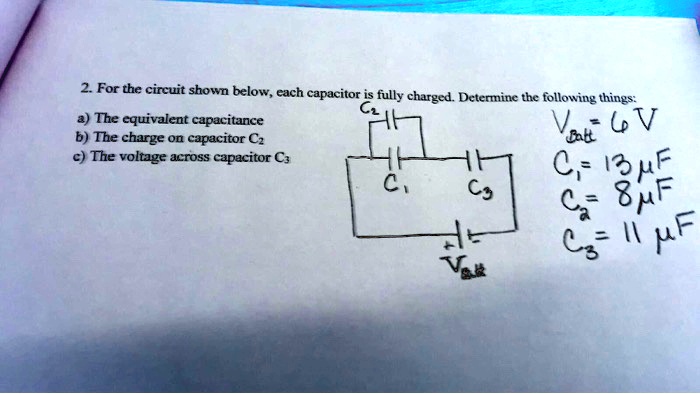 2. For the circuit shown below, each capacitor is fully charged. Determine the following things:
a) The equivalent capacitance
b) The charge on capacitor C₂
c) The voltage across capacitor C₃
C₂
C₁
C₃
+ -
V_Batt
V_Batt = 6 V
C₁ = 13 μF
C₂ = 8 μF
C₃ = 11 μF